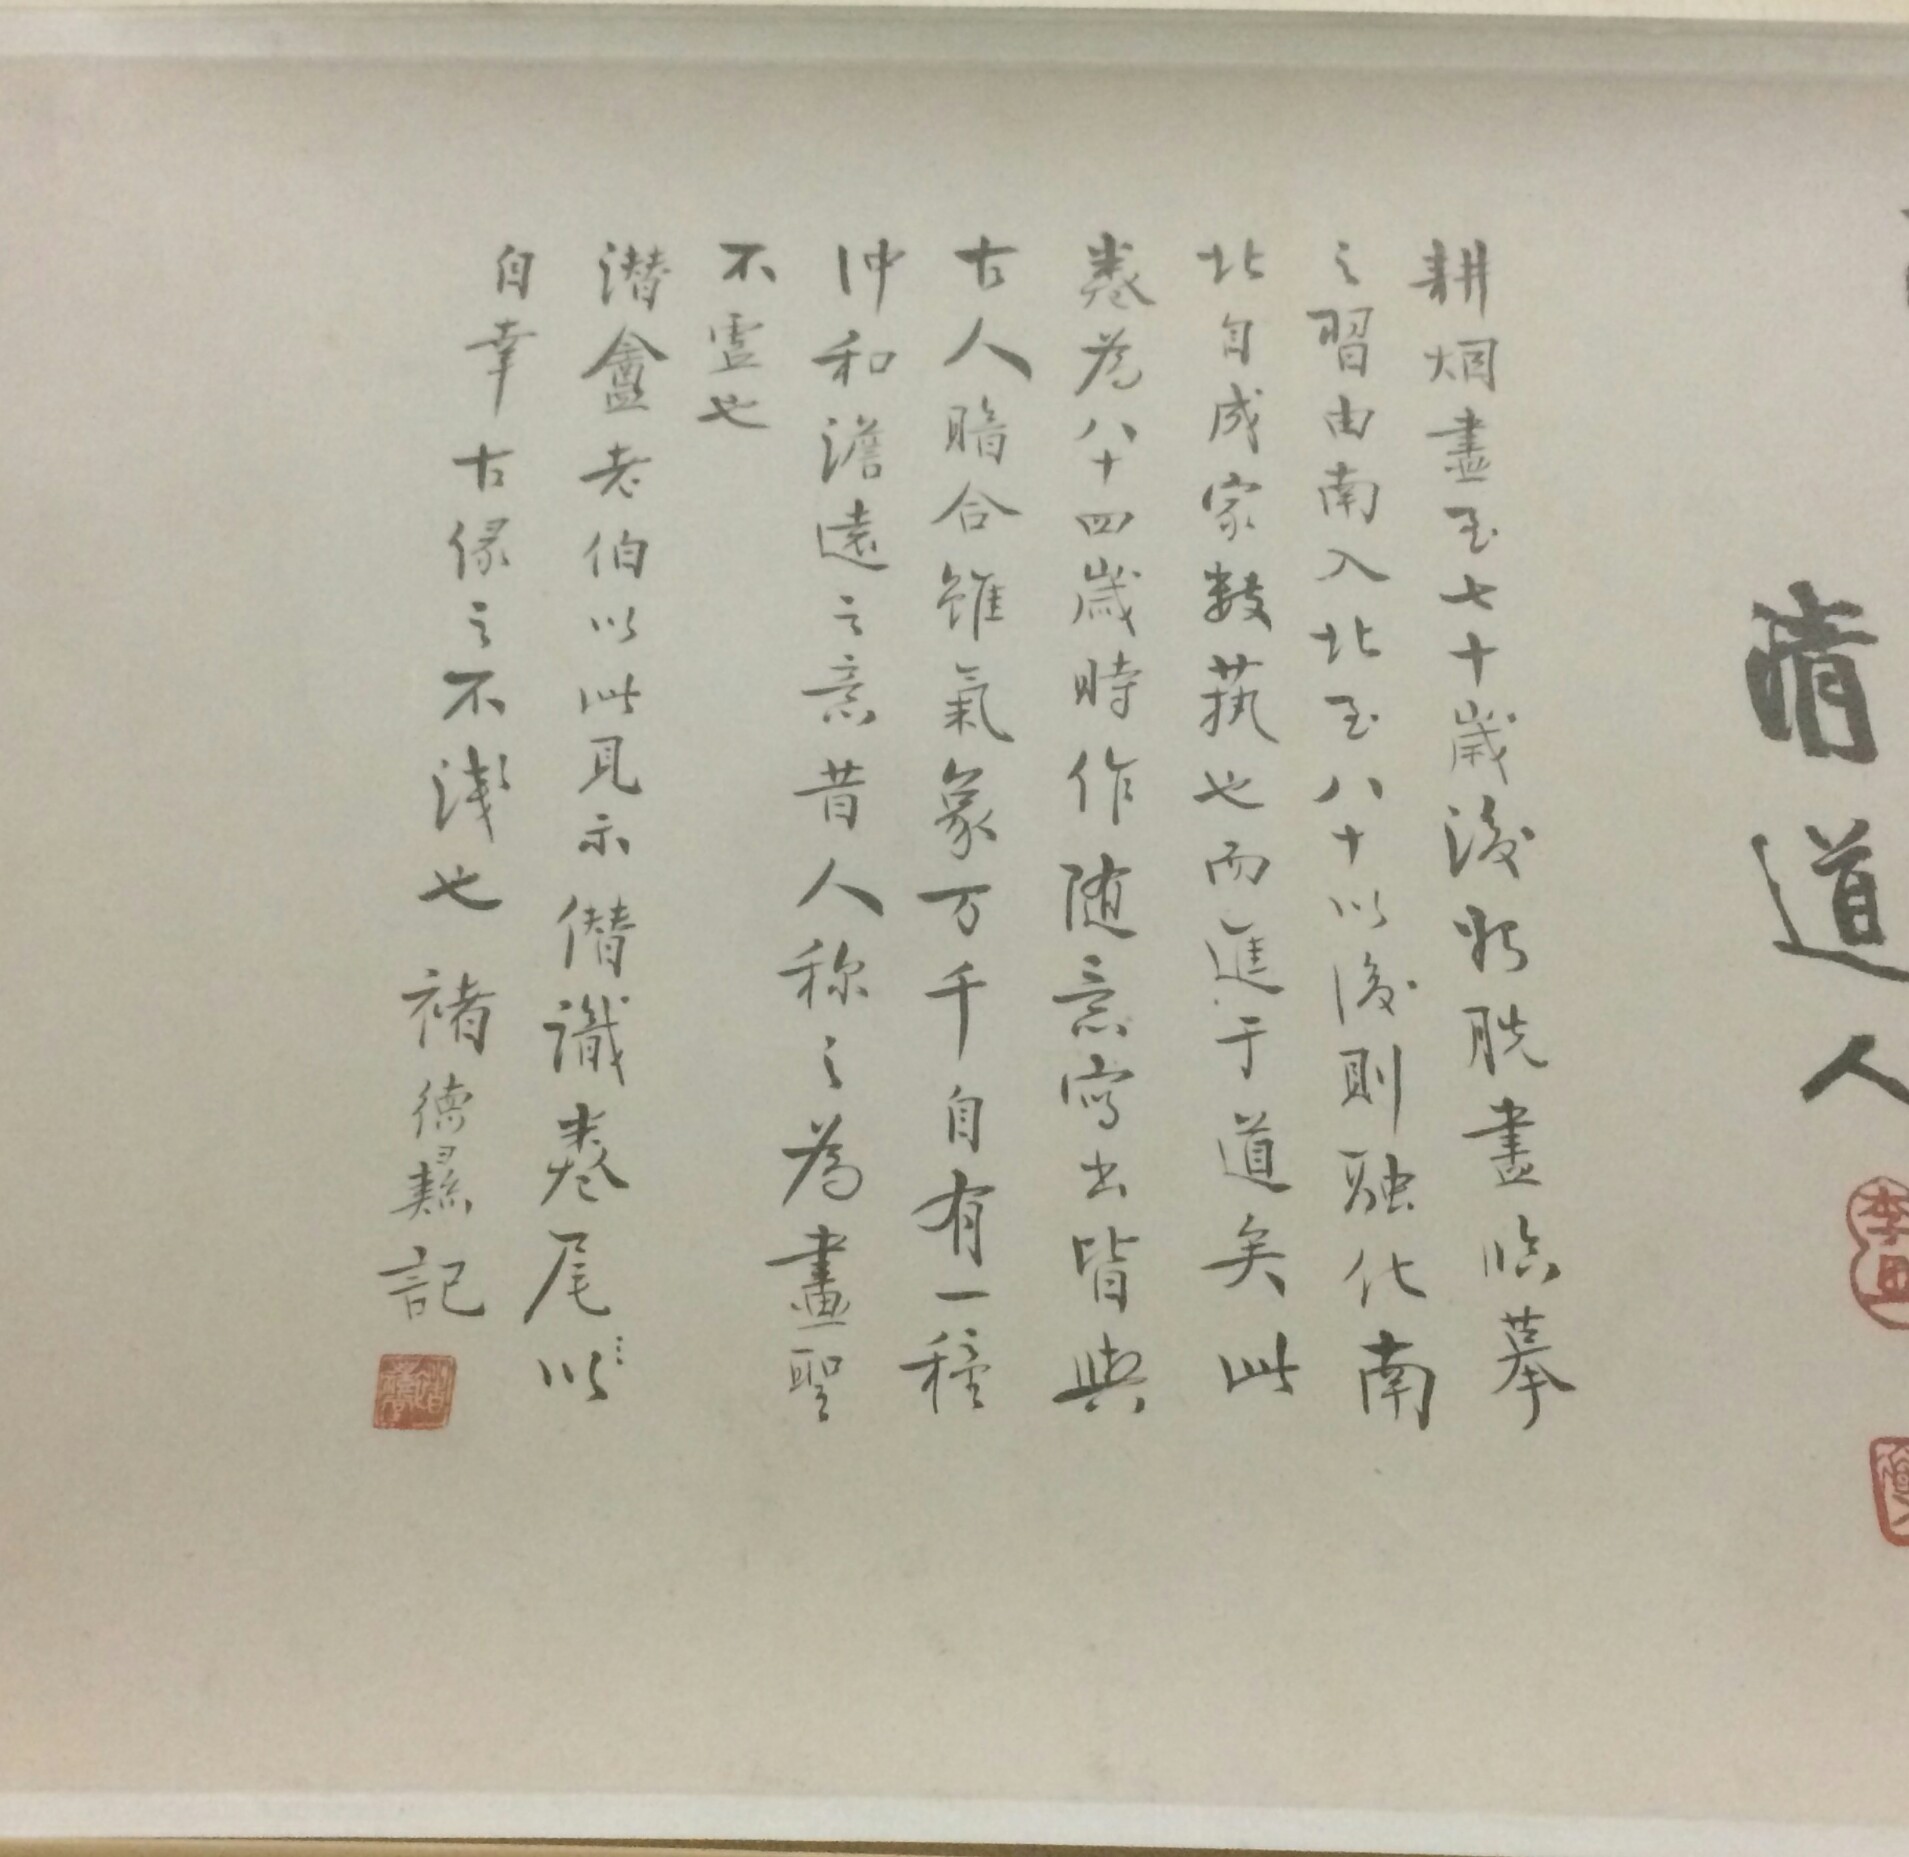 清道人
耕烟畫至七十歲後脱盡臨摹
之習由南入北至八十以後則融化南
北自成家數蓺也而進于道矣此
卷為八十四歲時作随意寫出皆與
古人暗合雖氣象万千自有一種
冲和澹遠之意昔人称之為畫聖
不虚也
潜盦老伯以此見示僭識卷尾以
自幸古缘之不淺也 褚德彝記